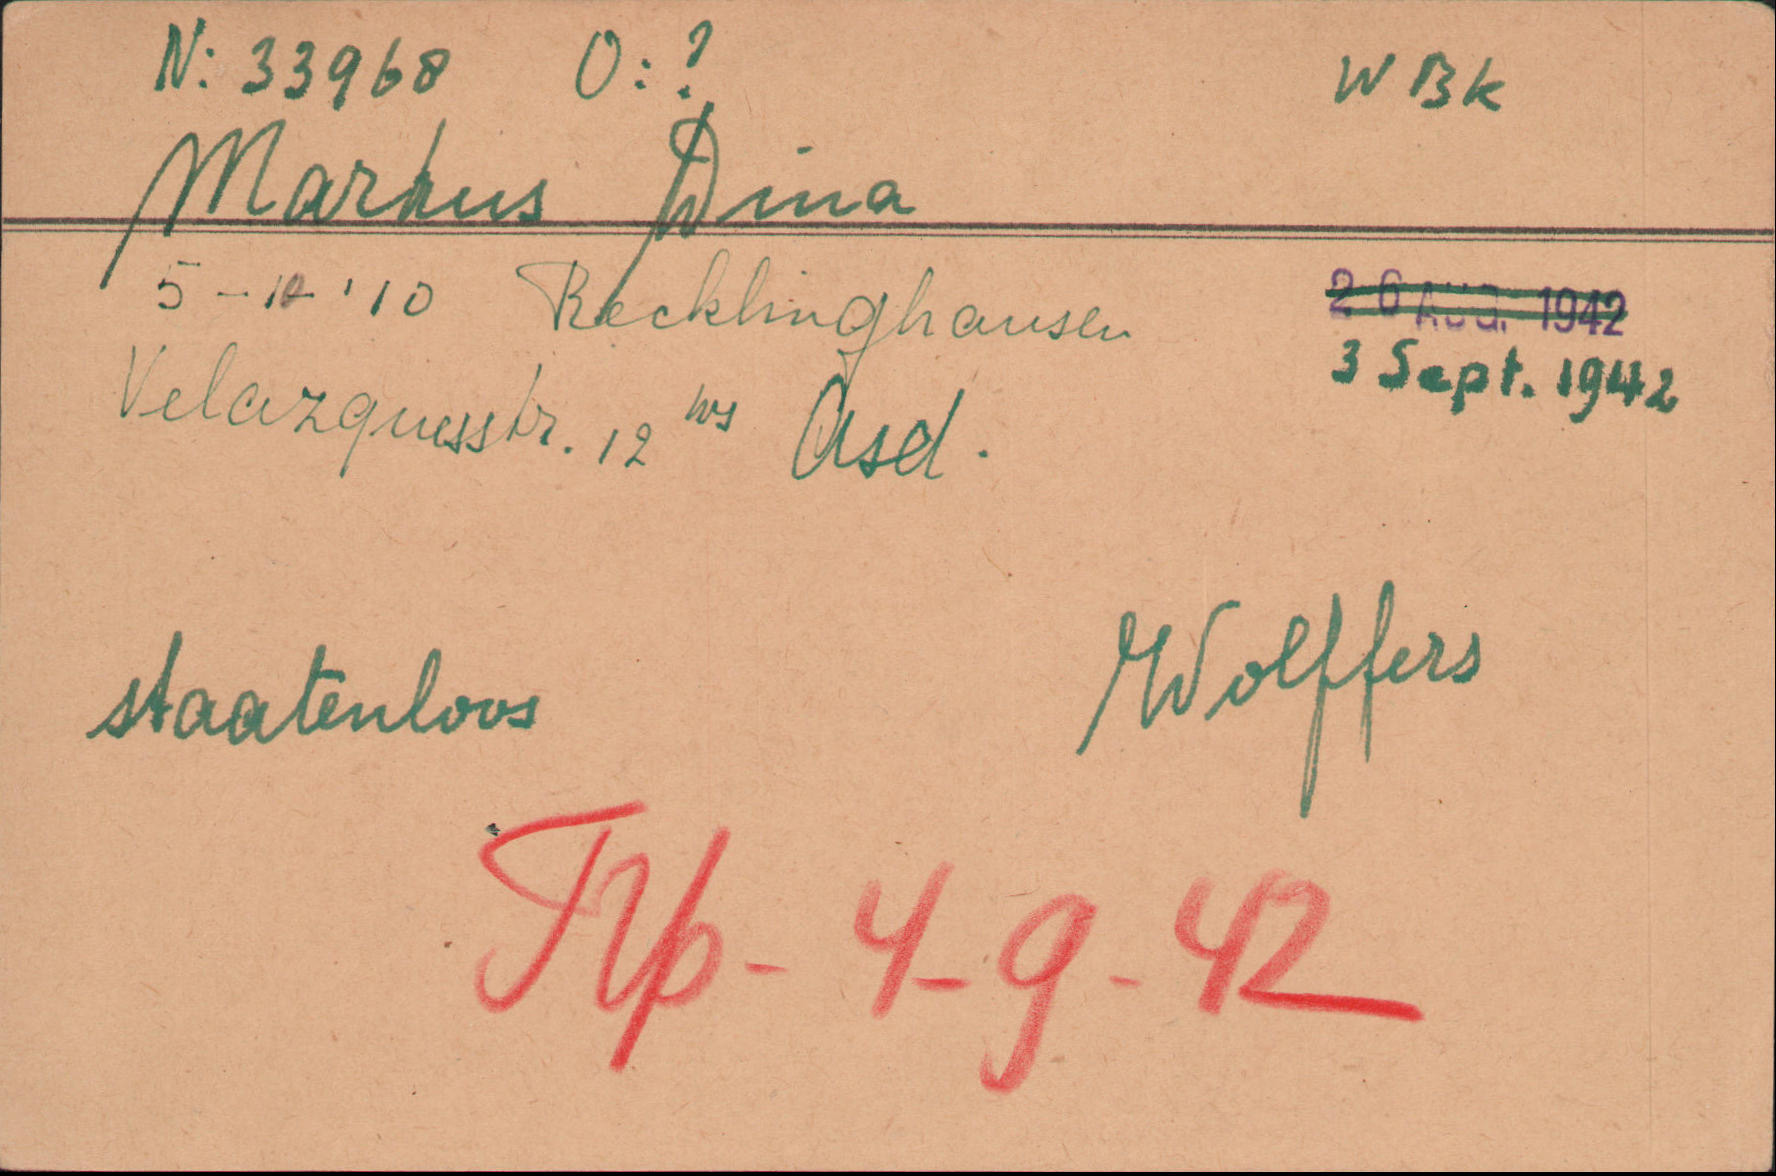 N: 33968 O: ? W B K
Markus Dina
5 - 10 - '10 Recklinghausen 26 AUG. 1942
3 Sept. 1942
Velazquesstr. 12 hs Asd.
staatenloos Wolffers
Tp - 4 - 9 - 42